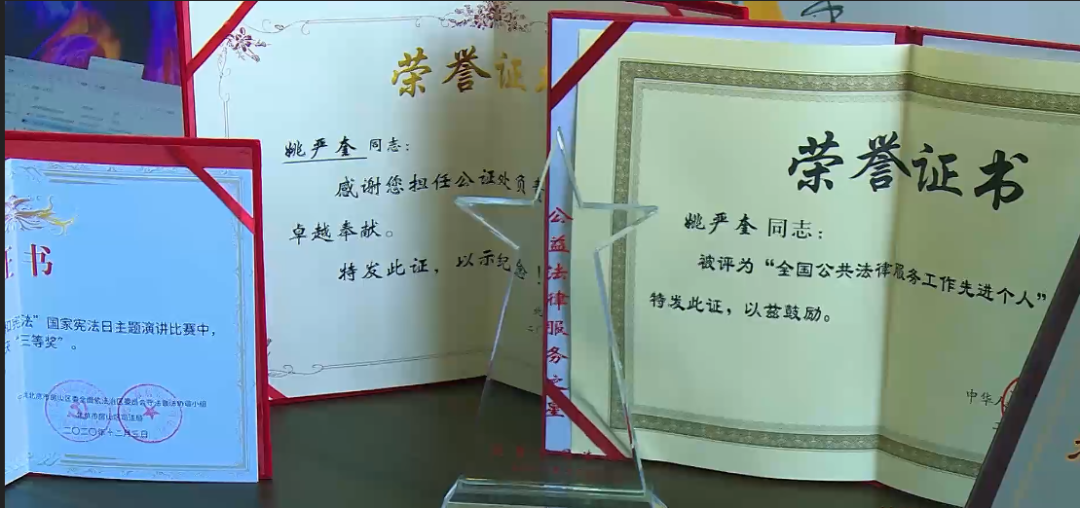 书
宪法”国家宪法日主题演讲比赛中,
“三等奖”。
二〇二〇年十二月三日
荣誉证
姚严奎 同志:
感谢您担任公证处负
卓越奉献。
特发此证,以示纪念!
公益法律服务之星
荣誉证书
姚严奎 同志:
被评为“全国公共法律服务工作先进个人”
特发此证,以兹鼓励。
中华人